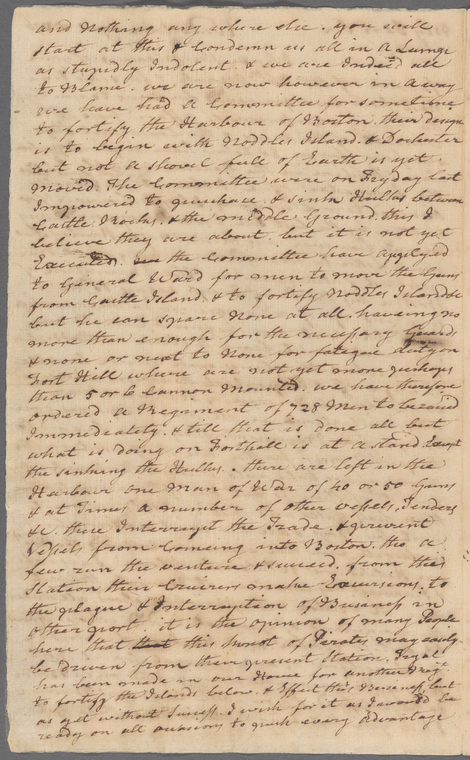 and Nothing any where else. you will
start at this & Condemn us all in A Lump
as stupidly Indolent & we are Indeed all
to Blame. we are now however in A way
we have had A Committee for sometime
to fortify the Harbour of Boston. their design
is to began with Noddles Island. & Dochester
but not A shovel full of Earth is yet
Moved. The Committee were on Fryday last
Impowered to purchace & sink Hulks between
Castle Rocks. & the middle Ground. this I
believe they are about. but it is not yet
Executed. the Committee have applyed
to General Ward for men to move the Guns
from Castle Island & to fortify Noddles Island &c
but he can spare None at all. haveing no
more than enough for the necessary Guards
& none or next to None for fatigue duty on
Fort Hill where are not yet more perhaps
than 5 or 6 Cannon Mounted. we have therefore
ordered A Regiment of 728 Men to be raised
Immediately. & till that is done all but
what is doing on Forthill is at A stand. Except
the sinking the Hulks. there are left in the
Harbour one Man of War of 40 or 50 Guns
& at Times A number of other vessels, Tenders
&c. these Interrupt the Trade. & prevent
Vessels from Comeing into Boston. tho' a
few run the venture & succeed. from this
Station their Cruizers make Excursions. to
the plague & Interruption of Business in
other port. it is the opinion of many People
here that this knot of Pirates may easily
be driven from their present Station. Tryal
has been made in our House for another Reg.
to fortify the Islands below. & Effect this Business, but
as yet without Success. I wish for it as I would be
ready on all occasions to push every Advantage